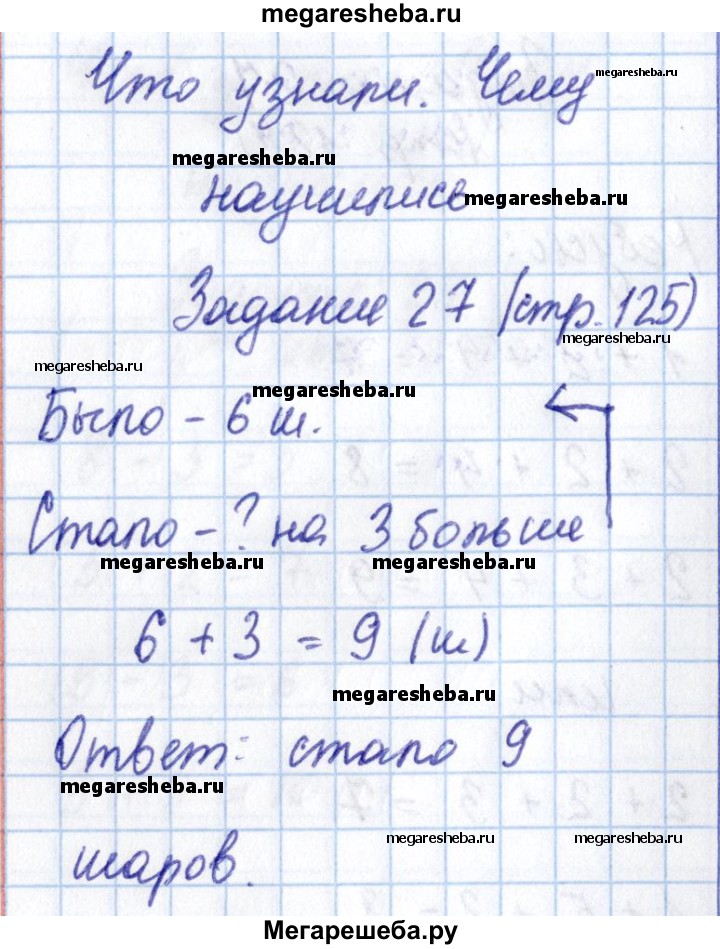 megaresheba.ru
Что узнали. Чему
megaresheba.ru
megaresheba.ru
научились
megaresheba.ru
Задание 27 (стр. 125)
megaresheba.ru
megaresheba.ru
megaresheba.ru
Было - 6 ш.
Стало - ? на 3 больше
megaresheba.ru
megaresheba.ru
6 + 3 = 9 (ш)
megaresheba.ru
Ответ: стало 9
megaresheba.ru
megaresheba.ru
megaresheba.ru
шаров.
Мегарешеба.ру